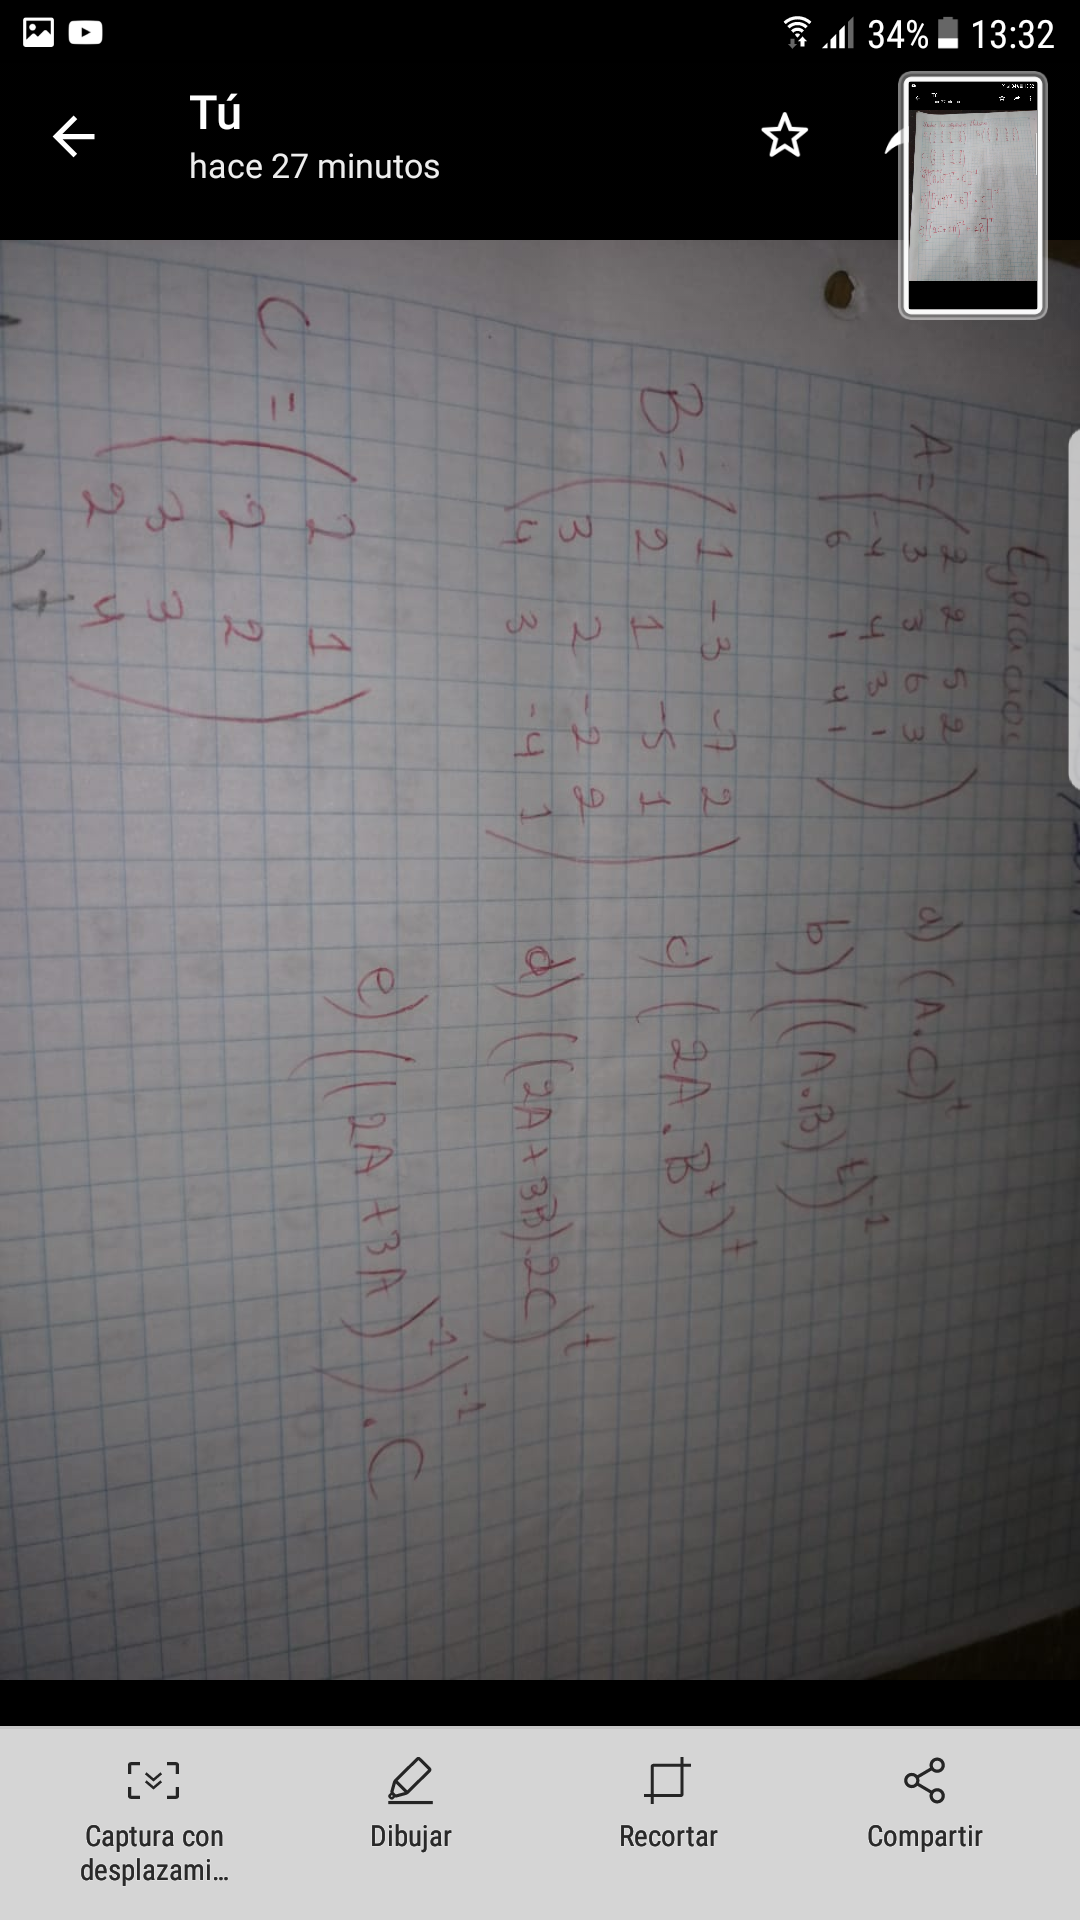 34% 13:32
Tú
hace 27 minutos
A = ( 2 2 5 2
3 3 6 3
-4 4 3 1
6 1 4 1 )
B = ( 1 -3 -7 2
2 1 -5 1
3 2 -2 2
4 3 -4 1 )
C = ( 2 1
2 2
3 3
2 4 )
a) (A.C)^t
b) ((A.B)^t)^-1
c) (2A.B^t)^t
d) ((2A+3B).2C)^t
e) ((2A+3A)^-1)^-1.C
Captura con desplazami...
Dibujar
Recortar
Compartir